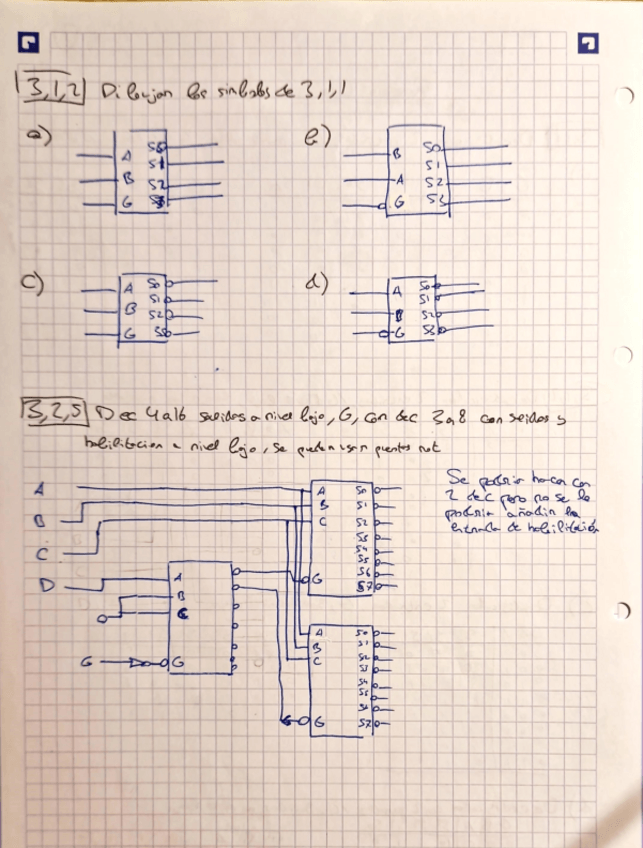 3,1,2 Dibujan los simbolos de 3,1,1
a)
A S0
B S1
S2
G S3
b)
B S0
S1
A S2
G S3
c)
A S0
B S1
S2
G S3
d)
A S0
S1
B S2
G S3
3,2,5 Dec 4a16 salidas a nivel bajo, G, con dec 3a8 con salidas y
habilitacion a nivel bajo, se pueden usar puertas not
Se podria hacer con
2 dec pero no se le
podria añadir la
entrada de habilitación
A
B
C
D
0
G
A
B
C
G
A S0
B S1
C S2
S3
S4
S5
G S6
S7
A S0
B S1
C S2
S3
S4
S5
S6
G G S7